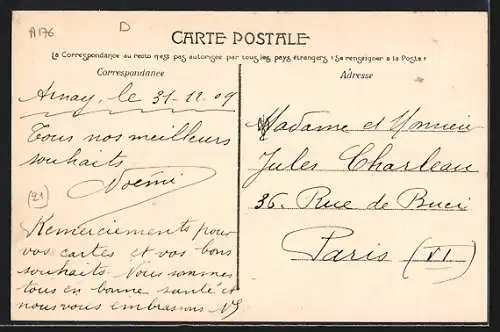 A176
D
CARTE POSTALE
La Correspondance au recto n'est pas autorisée par tous les pays étrangers (Se renseigner à la Poste)
Correspondance
Arnay, le 31-12-09
Tous nos meilleurs
souhaits
Noémi
(21)
Remerciements pour
vos cartes et vos bons
souhaits. Nous sommes
tous en bonne santé et
nous vous embrassons
Adresse
Madame et Monsieur
Jules Charleau
36. Rue de Buci
Paris (VI.)